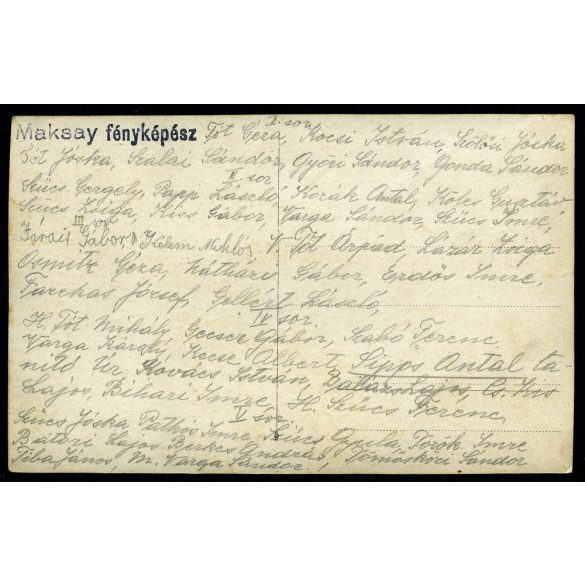 I. sor
Maksay fényképész Tót Géza, Kocsi István, Szőlősi Jóska
Tót Jóska, Szalai Sándor, Győri Sándor, Gonda Sándor
II sor
Szücs Gergely, Papp László, Kozák Antal, Köles Gusztáv
Szücs Zsiga, Kiss Gábor, Varga Sándor, Szücs Imre,
III sor
Izrail Gábor, Kelem Miklós V. Tót Árpád, Lázár Zsiga
Osmitz Géza, Gábor, Erdős Imre,
Farckas József, Gellért László,
IV sor.
H. Tót Mihály, Gecser Gábor, Szabó Ferenc.
Varga Károly, Kecse Albert, Sipos Antal ta-
nitó Úr, Kovács István, Balázs Lajos, Cs. Kis
Lajos, Bihari Imre, H. Szücs Ferenc,
V sor.
Szücs Jóska, Patkós Imre, Szücs Gyula, Török Imre
Bátori Lajos, Berkes András, Tömösközi Sándor
Tiba János, M. Varga Sándor.